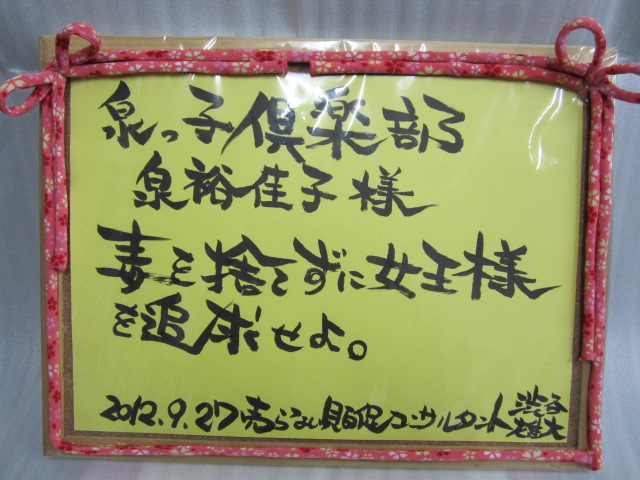 泉っ子倶楽部
泉裕佳子様
毒を捨てずに女王様
を追求せよ。
2012.9.27 売らない販促コンサルタント 渋谷
雄大